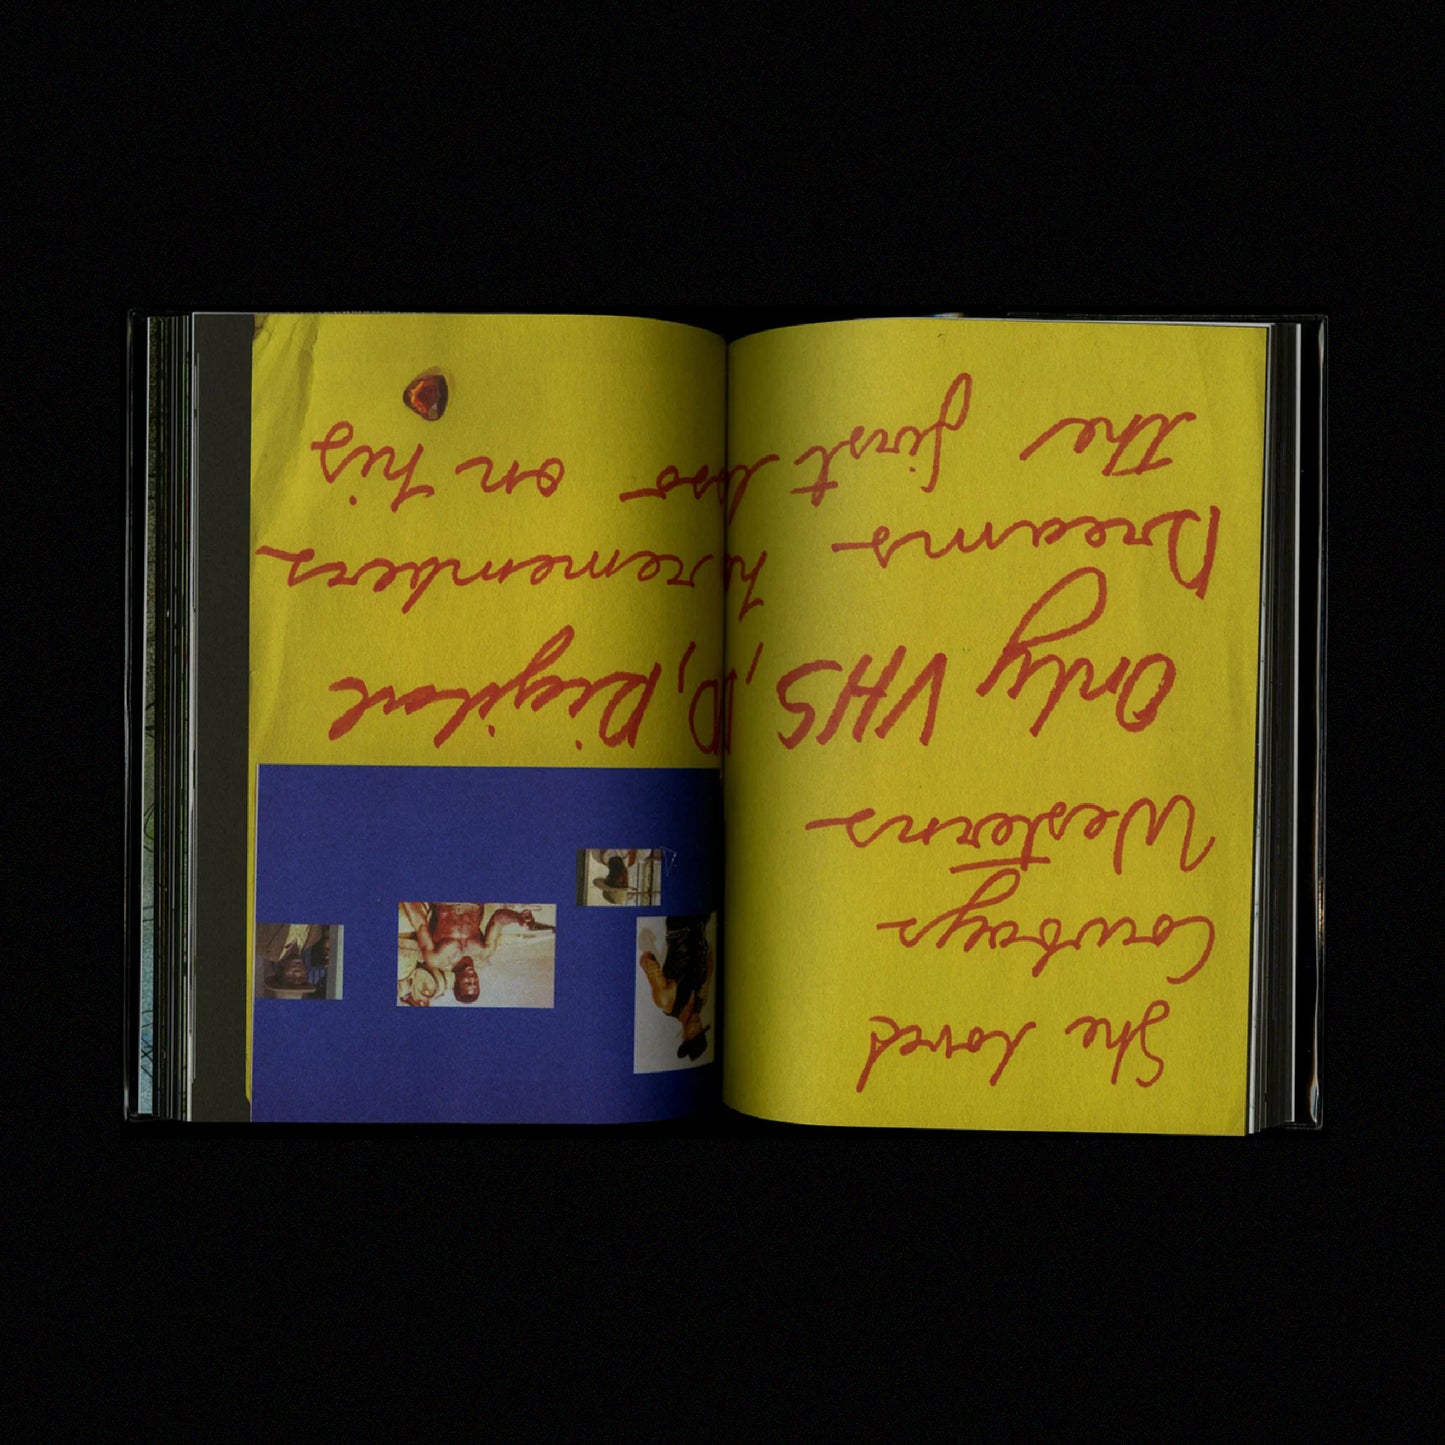 She loved
Cowboys
Westerns
Only VHS, DVD, Digital
Dreams he remembers
the first on his